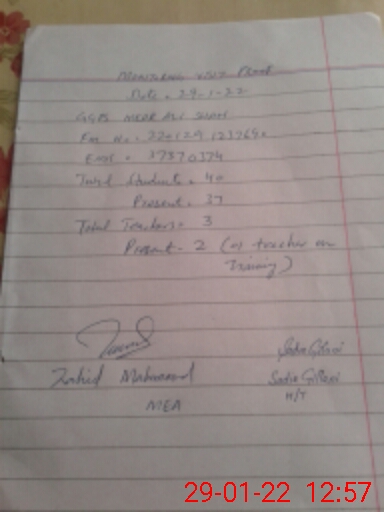 MONITORING VISIT PROOF
Date = 29-1-22
GGPS MEHR ALI SHAH
Emis = 37370374
Total Students = 40
Present = 37
Total Teachers = 3
Present = 2 (01 teacher on
Training)
Zahid Mahmood
Sadia Gillani
MEA
H/T
29-01-22 12:57